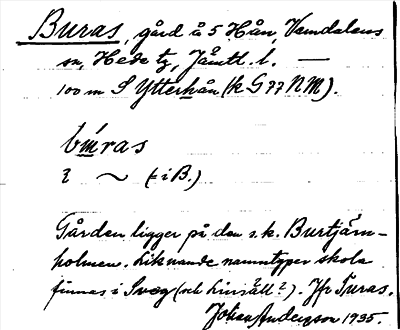 Buras, gård å 5 Hån, Vemdalens
sn, Hede tg, Jämtl. l. —
100 m S Ytterhån (k G 77 N M.).
búras
~ (= i B.)
Gården ligger på den s.k. Burtjärn-
holmen. Liknande namntyper skola
finnas i Sveg (och Linsäll?). Jfr Turas.
Johan Anderzon 1935.